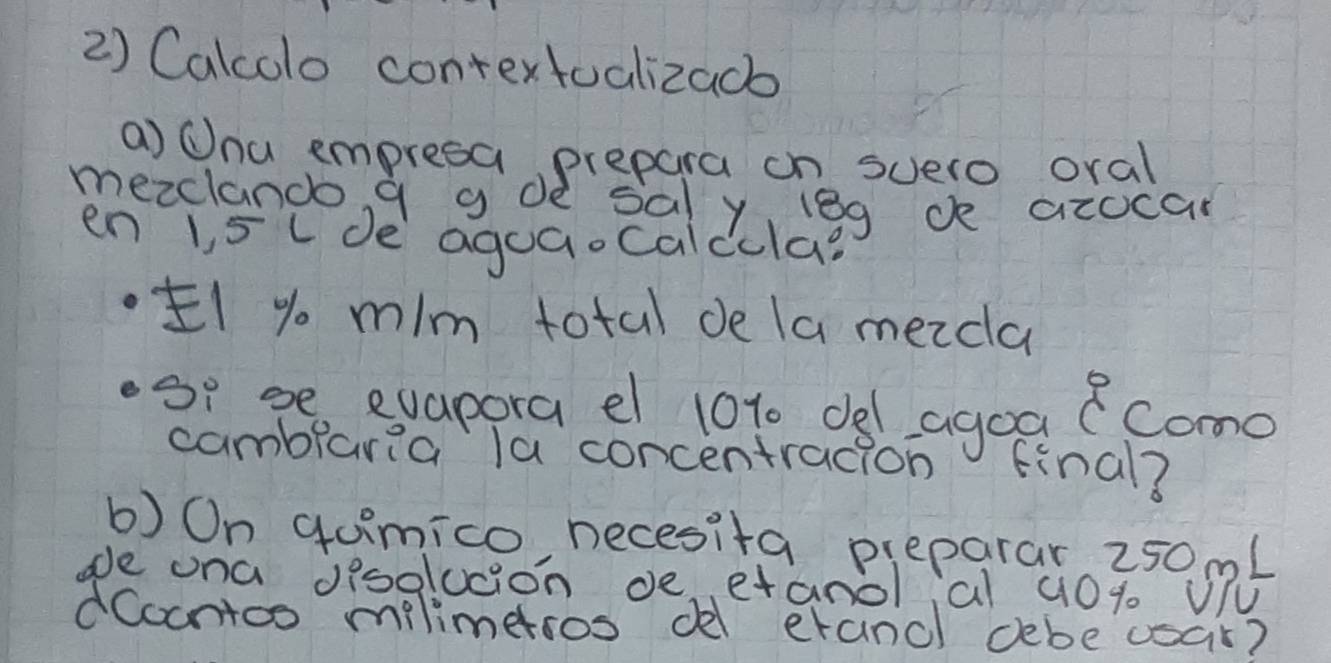 2) Calculo contextualizado
a) Una empresa prepara un suero oral
mezclando 9 g de sal y 18g de azucar
en 1,5 L de agua. Calcula:
• El % m/m total de la mezcla
• Si se evapora el 10% del agua ¿Como
cambiaria la concentración final?
b) Un químico necesita preparar 250 mL
de una disolución de etanol al 40% v/v
¿Cuantos milimetros del etanol debe usar?